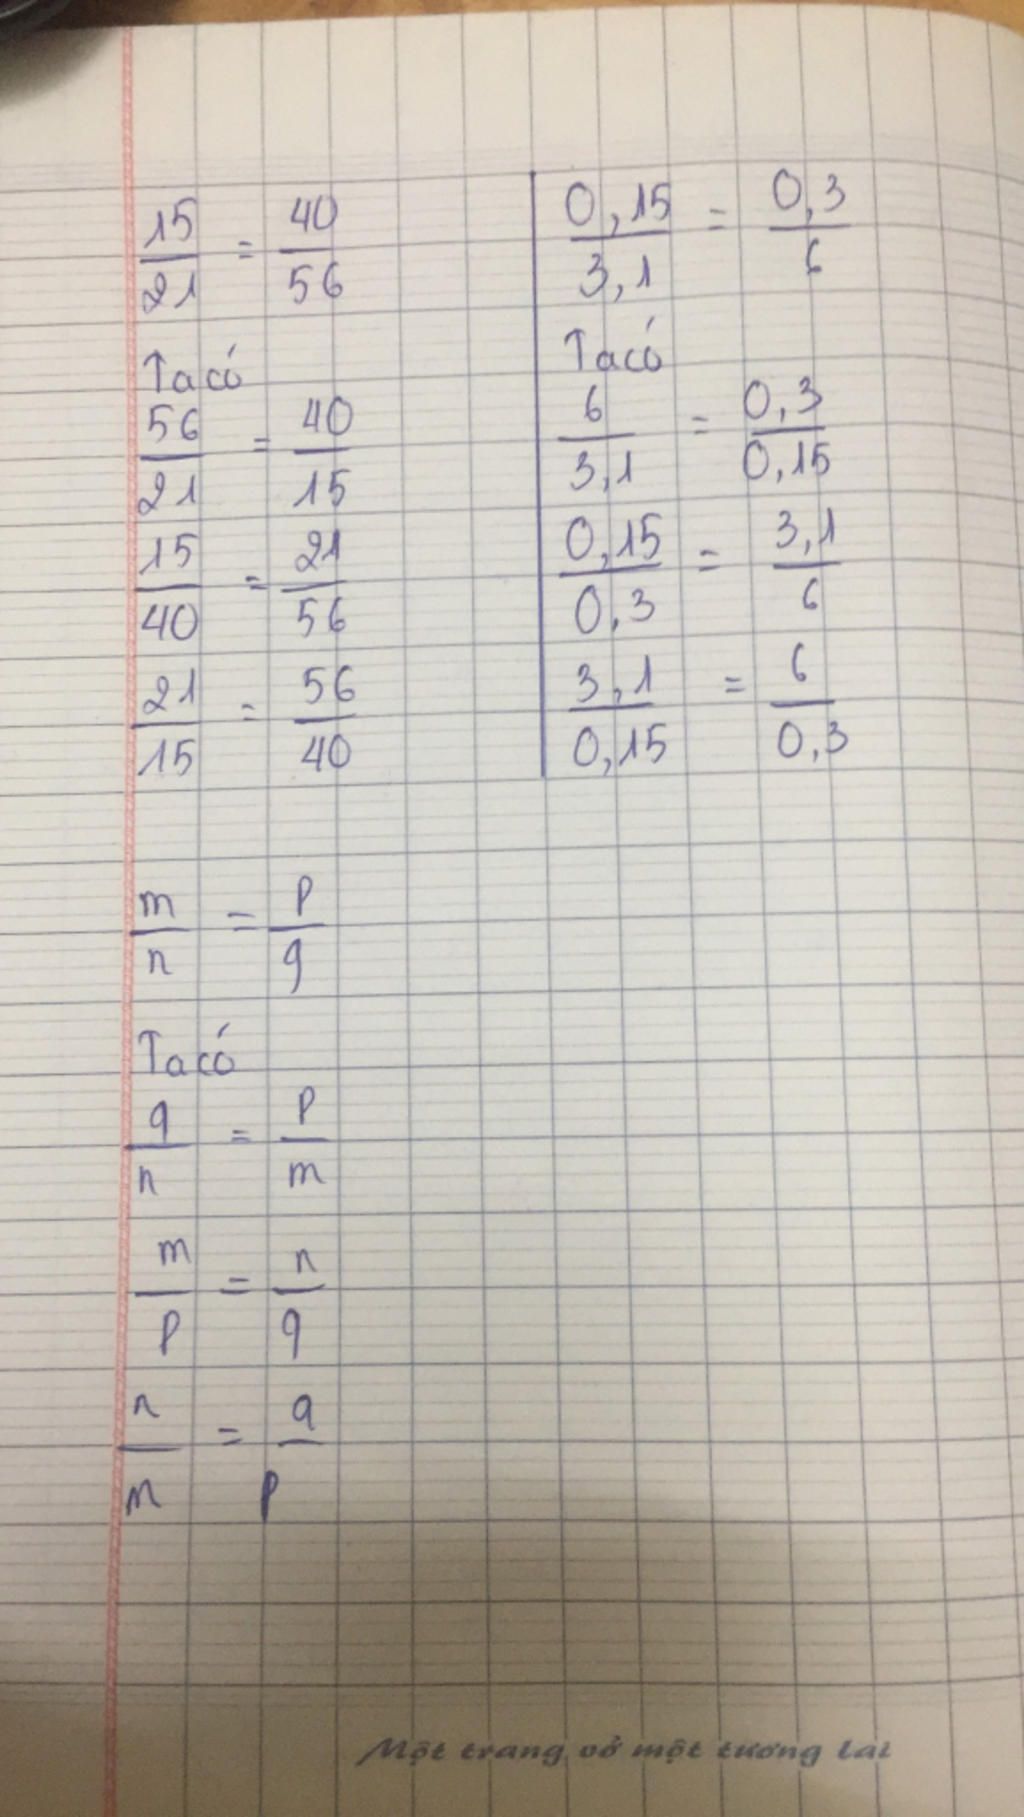 15/21 = 40/56
Ta có
56/21 = 40/15
15/40 = 21/56
21/15 = 56/40
0,15/3,1 = 0,3/6
Ta có
6/3,1 = 0,3/0,15
0,15/0,3 = 3,1/6
3,1/0,15 = 6/0,3
m/n = p/q
Ta có
q/n = p/m
m/p = n/q
n/m = q/p
Một trang vở một tương lai